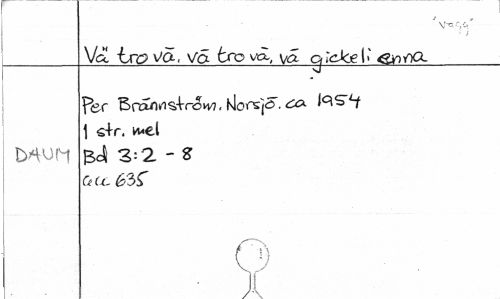 "vagg"
Vä tro vä, vä tro vä, vä gickeli enna
Per Brännström, Norsjö, ca 1954
1 str. mel
DAUM Bd 3:2 - 8
acc 635